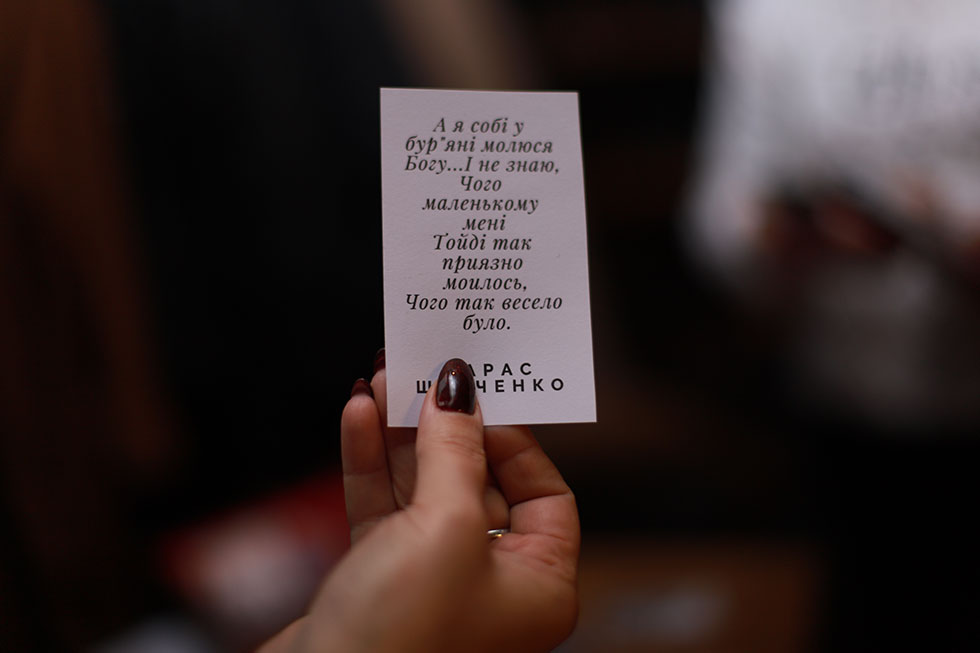 А я собі у
бур"яні молюся
Богу...І не знаю,
Чого
маленькому
мені
Тойді так
приязно
моилось,
Чого так весело
було.